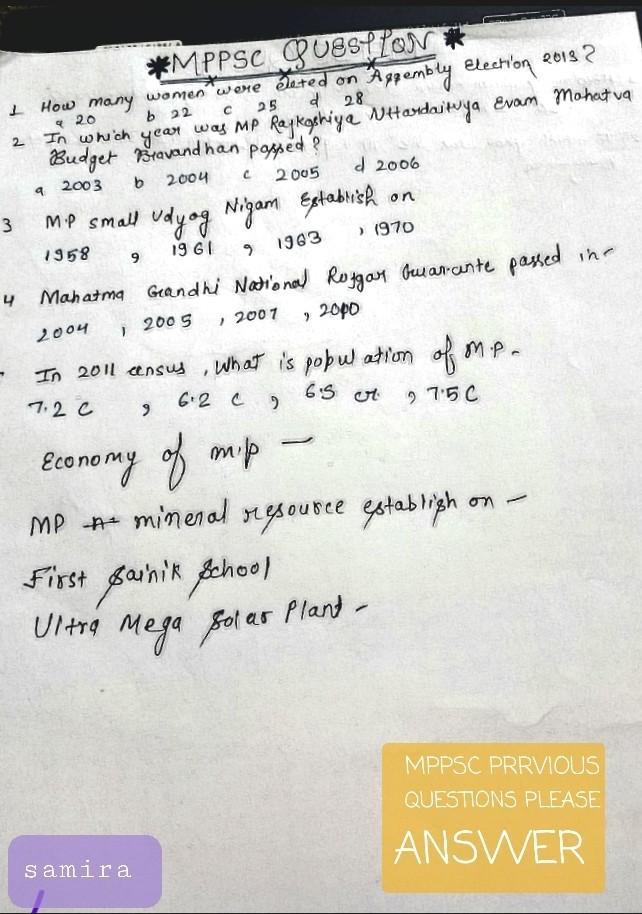 *MPPSC QUESTION*
1 How many women were eleted on Assembly Election 2013?
a 20 b 22 c 25 d 28
2 In which year was MP Rajkoshiya Uttardaitvya Evam Mahatva
Budget Bravandhan passed?
a 2003 b 2004 c 2005 d 2006
3 M.P small Udyog Nigam Establish on
1958 , 1961 , 1963 , 1970
4 Mahatma Grandhi National Rozgar Guarante passed in-
2004 , 2005 , 2007 , 2000
In 2011 census, What is population of M.P-
7.2 C , 6.2 C , 6.5 cr , 7.5 C
Economy of m.p —
MP mineral resource establish on —
First Sainik School
Ultra Mega Solar Plant -
MPPSC PRRVIOUS
QUESTIONS PLEASE
ANSWER
samira